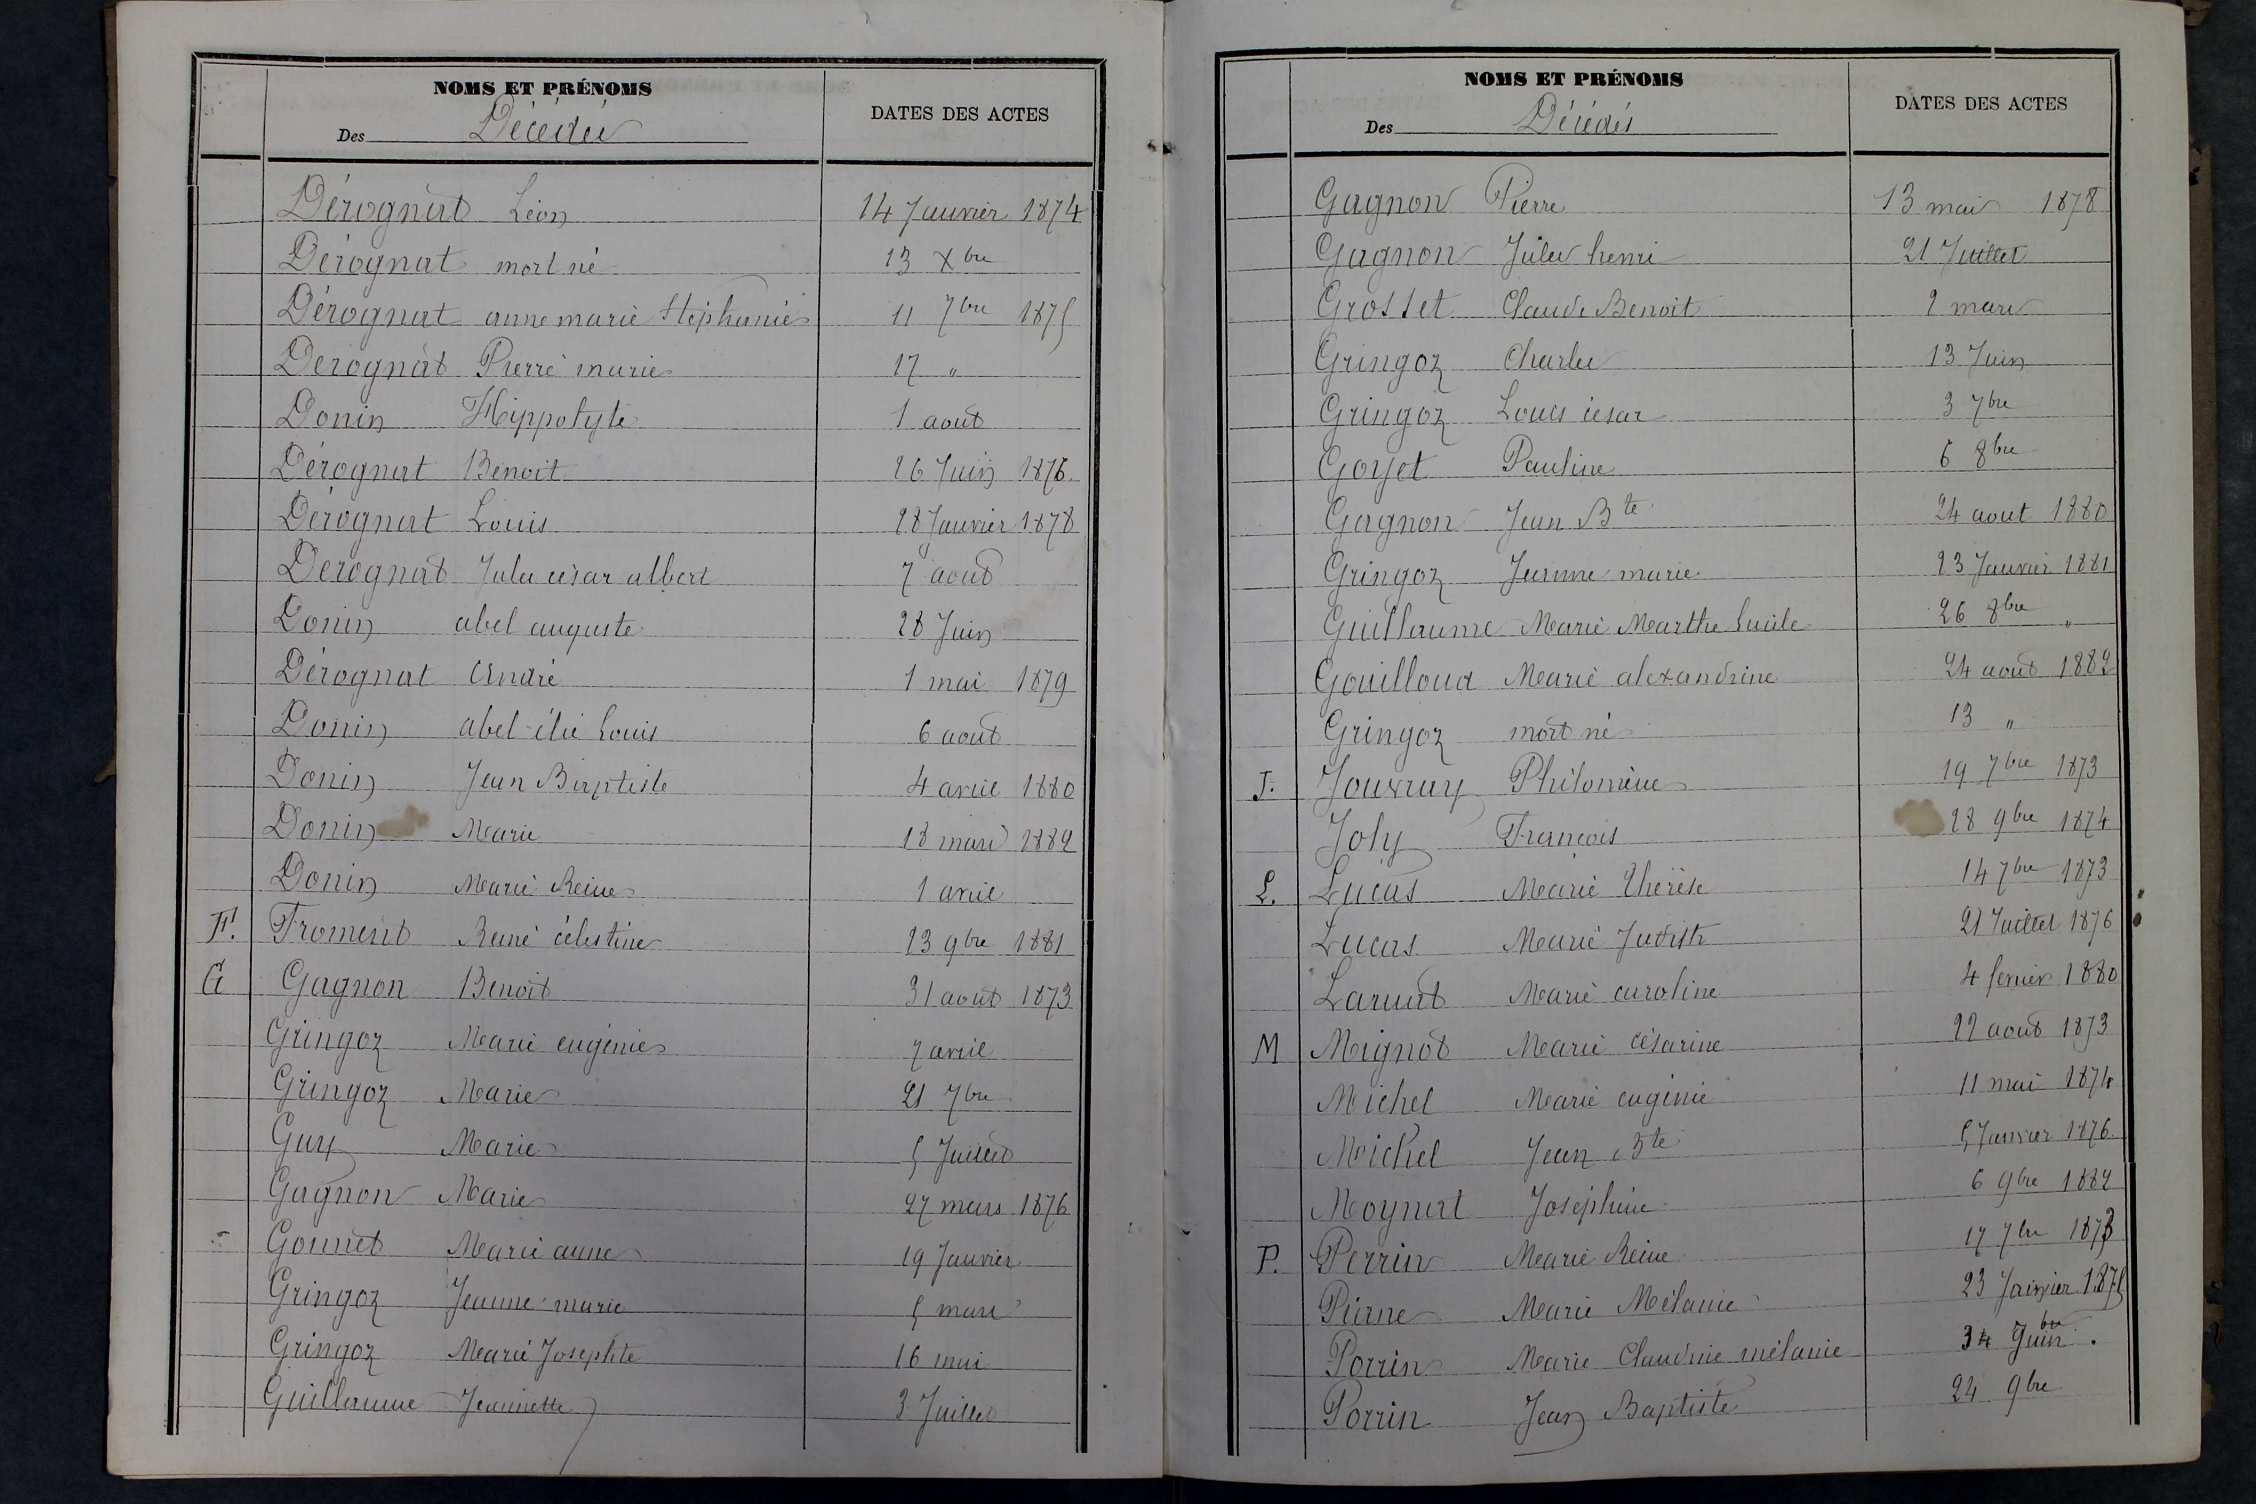 NOMS ET PRÉNOMS
Des Décédés
DATES DES ACTES
Dérognat Léon 14 Janvier 1874
Dérognat mort né 13 Xbre
Dérognat anne marie Stéphanie 11 7bre 1875
Derognat Pierre marie 17 "
Donin Hippolyte 1 août
Dérognat Benoit 26 Juin 1876
Dérognat Louis 28 Janvier 1878
Derognat Jules césar albert 7 août
Donin abel auguste 28 Juin
Dérognat André 1 mai 1879
Donin abel élie Louis 6 août
Donin Jean Baptiste 4 avril 1880
Donin Marie 18 mars 1882
Donin Marie Reine 1 avril
F. Froment René célestine 23 9bre 1881
G Gagnon Benoit 31 août 1873
Gringoz Marie eugénie 7 avril
Gringoz Marie 21 7bre
Guy Marie 5 Juillet
Gagnon Marie 27 mars 1876
Gonnet Marie anne 19 Janvier
Gringoz Jeanne marie 5 mars
Gringoz Marie Josephte 16 mai
Guillaume Jeannette 3 Juillet
NOMS ET PRÉNOMS
Des Décédés
DATES DES ACTES
Gagnon Pierre 13 mai 1878
Gagnon Jules henri 21 Juillet
Grosset Claude Benoit 2 mars
Gringoz Charles 13 Juin
Gringoz Louis césar 3 7bre
Goyet Pauline 6 8bre
Gagnon Jean Bte 24 aout 1880
Gringoz Jeanne marie 23 Janvier 1881
Guillaume Marie Marthe Lucile 26 8bre "
Gouilloud Marie alexandrine 24 août 1882
Gringoz mort né 13 "
J. Jouvray Philomène 19 7bre 1873
Joly François 28 9bre 1874
L. Lucas Marie Thérèse 14 7bre 1873
Lucas Marie Judith 21 Juillet 1876
Marie caroline 4 fevrier 1880
M Mignot Marie césarine 22 août 1873
Michel Marie eugénie 11 mai 1874
Michel Jean Bte 5 Janvier 1876
Moynat Joséphine 6 9bre 1882
P. Perrin Marie Reine 17 7bre 1873
Marie Mélanie 23 Janvier 1875
Porrin Marie Claudine mélanie
Porrin Jean Baptiste 24 9bre